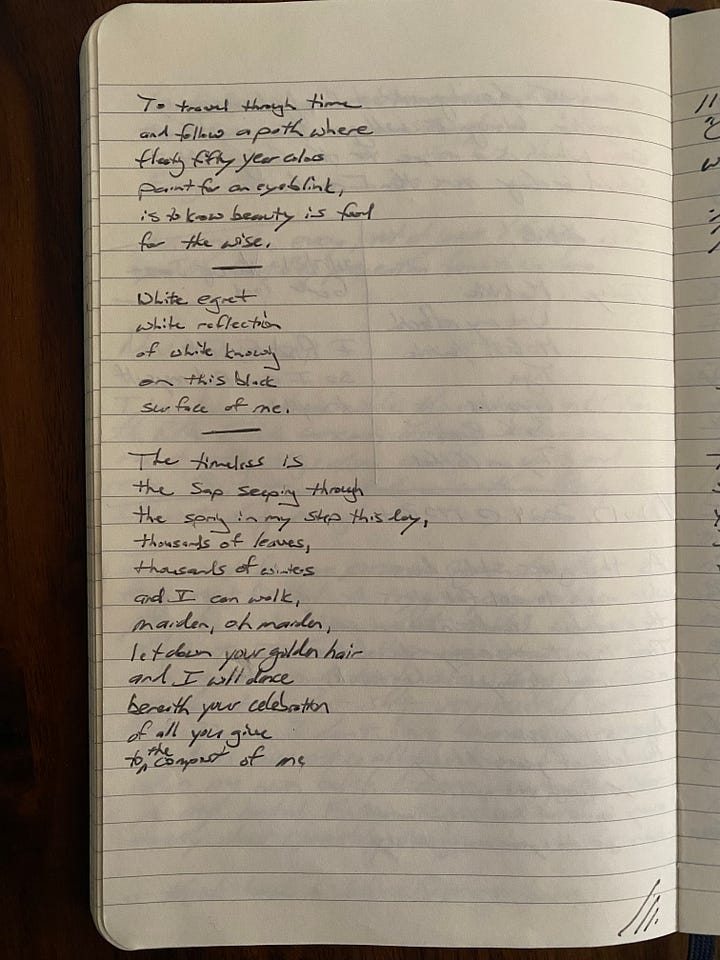 To travel through time
and follow a path where
fifty year colors
paint for an eyeblink,
is to know beauty is food
for the wise.
White egret
white reflection
of white knowing
on this black
surface of me.
The timeless is
the sap seeping through
the spring in my step this day,
thousands of leaves,
thousands of winters
and I can walk,
maiden, oh maiden,
let down your golden hair
and I will dance
beneath your celebration
of all you give
to the compost of me